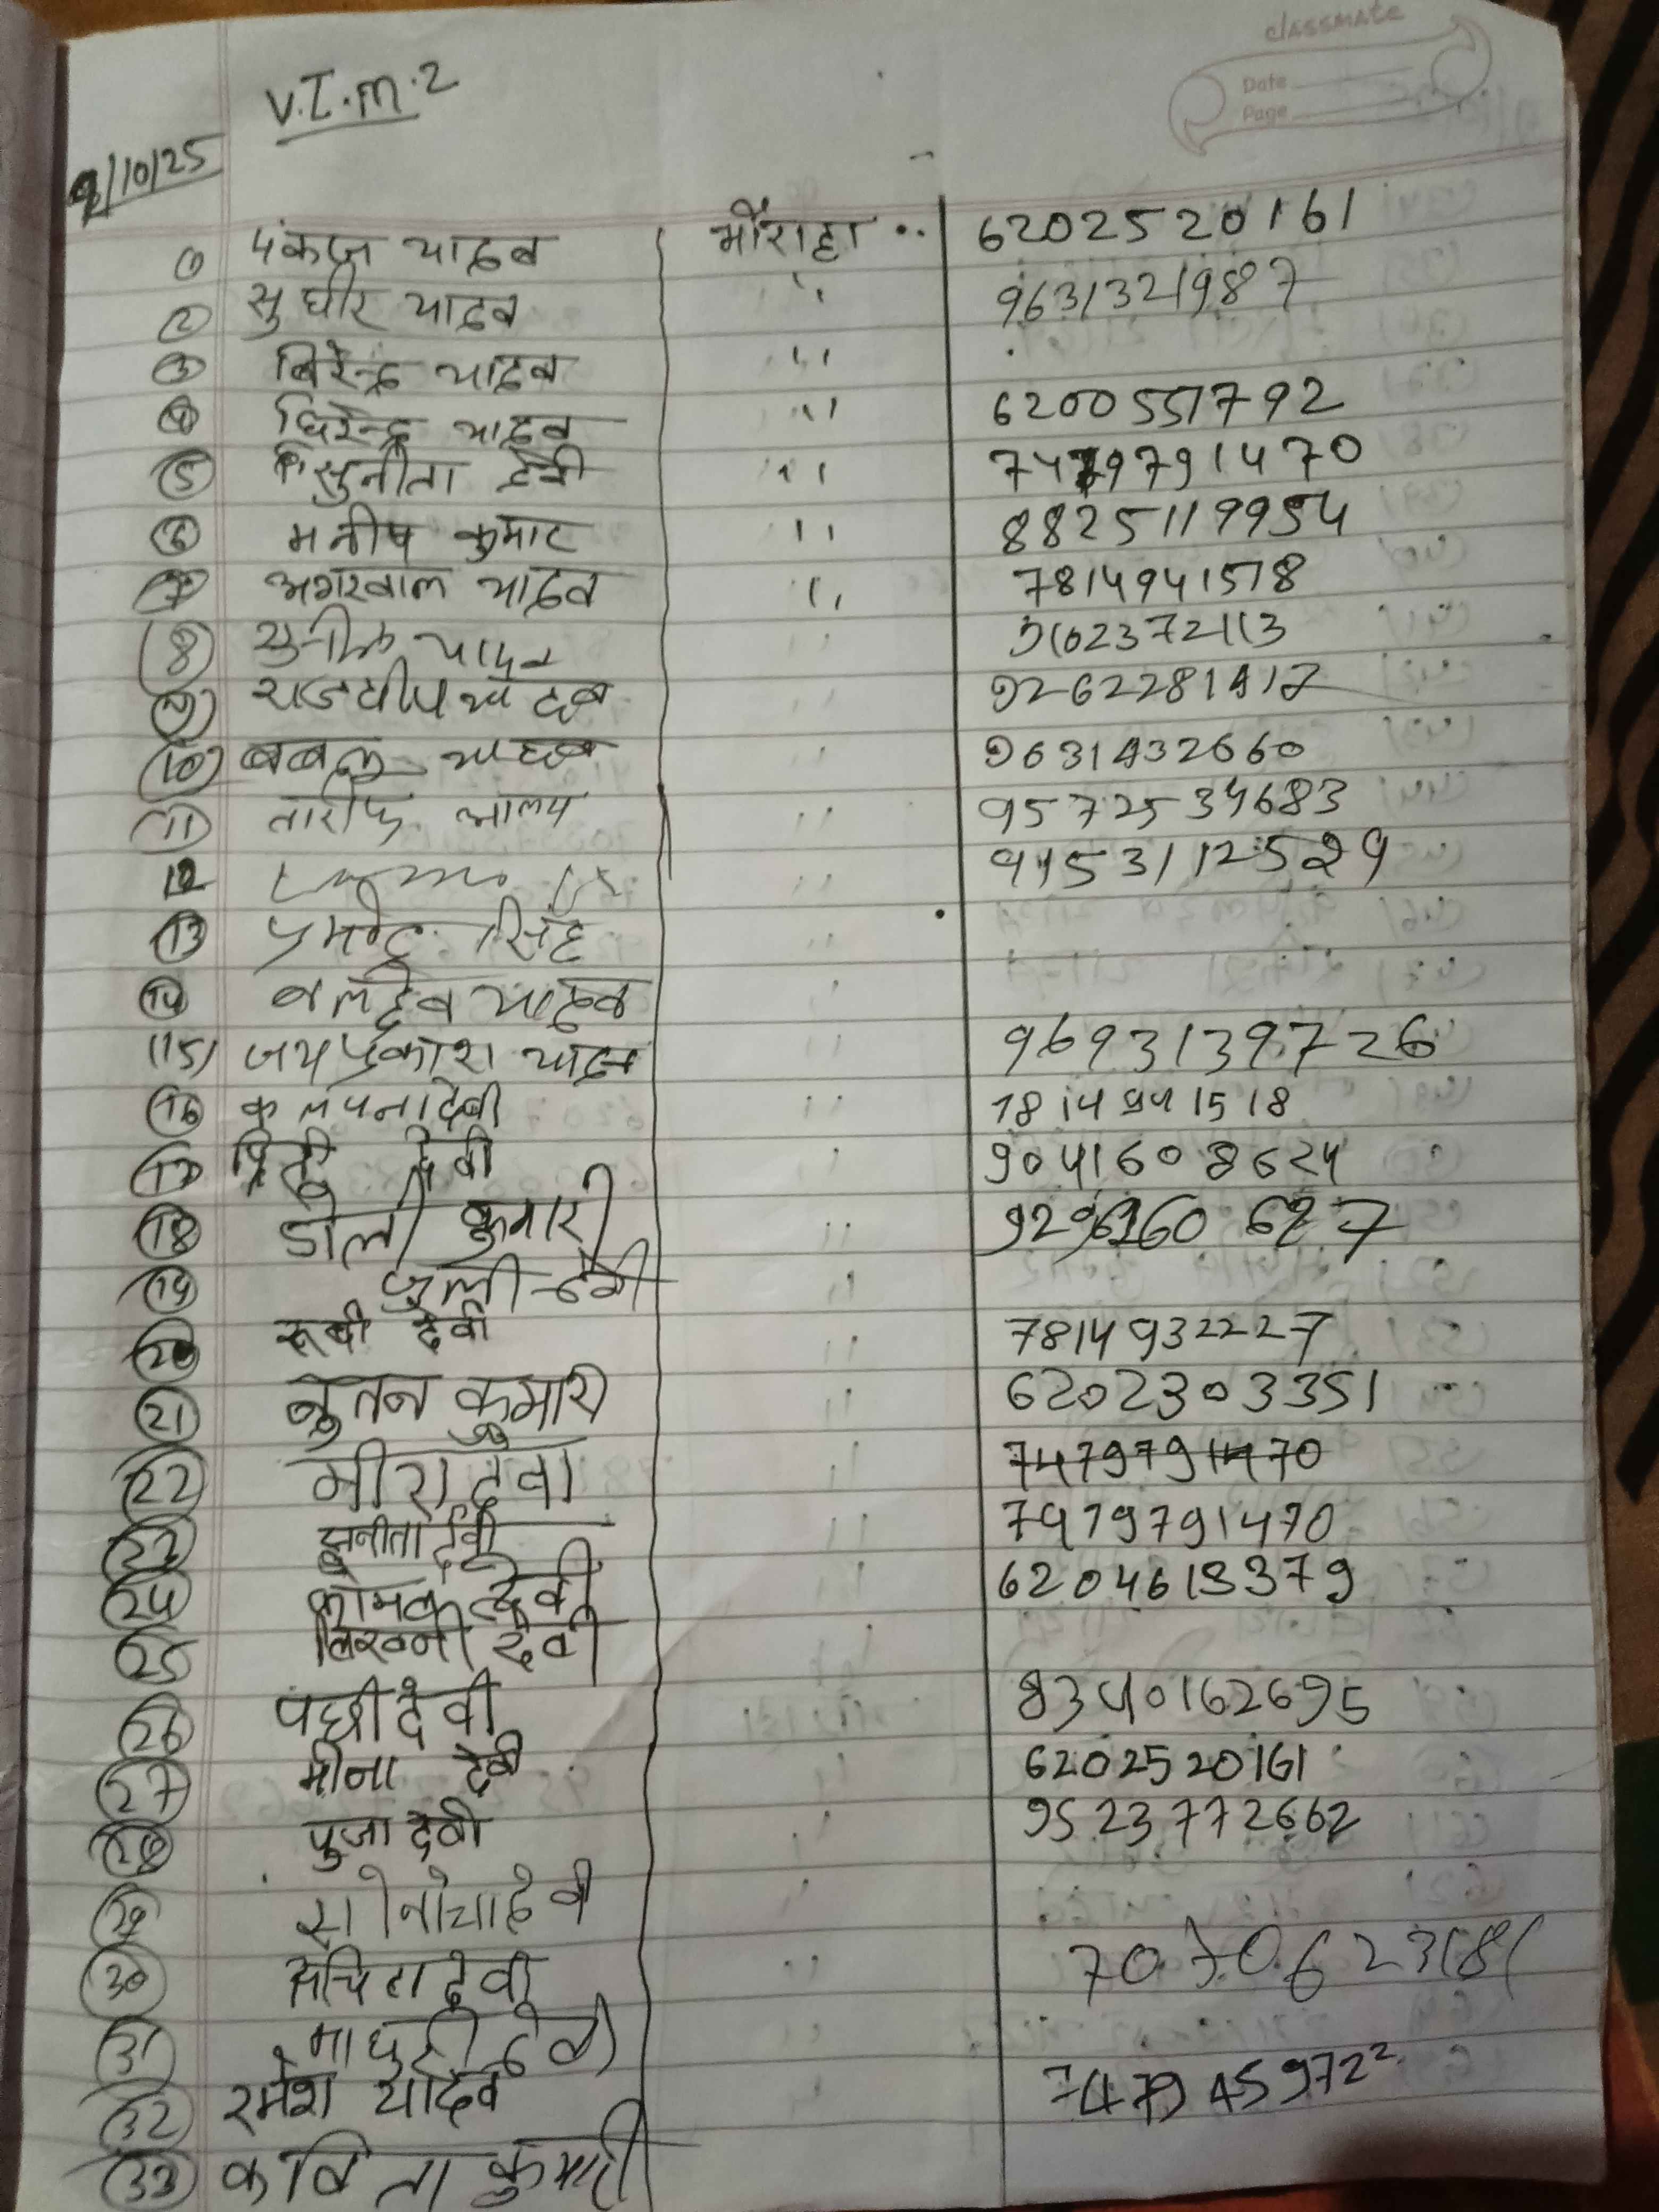 classmate
Date
Page
V.I.M.2
/10/25
1 पंकज यादव मौराहा .. 6202520161
2 सुधीर यादव " 9631321987
3 बिरेन्द्र यादव "
4 धिरेन्द्र यादव " 6200551792
5 सुनीता देवी " 7479791470
6 मनीष कुमार " 8825119954
7 अगरवाल यादव " 7814941518
8 सुनील यादव " 9102372113
9 यादव "
10 बबलु यादव " 9631432660
11 तारीफ आलम " 9572534683
12 "
13 प्रमोद सिंह "
14 बलदेव यादव "
15 जयप्रकाश यादव " 9693139726
16 कलपना देवी " 7814941518
17 देवी " 9041608624
18 डोली कुमारी "
19 जुली देवी "
20 रूबी देवी " 7814932227
21 नुतन कुमारी " 6202303351
22 मीरा देवी " 7479791470
23 सुनीता देवी " 7479791470
24 कोमल देवी " 6204613379
25 लिखनी देवी "
26 पछी देवी " 8340162695
27 मीना देवी " 6202520161
28 पुजा देवी " 9523772662
29 देवी "
30 देवी " 7070623181
31 माधुरी देवी "
32 रमेश यादव "
33 कविता कुमारी